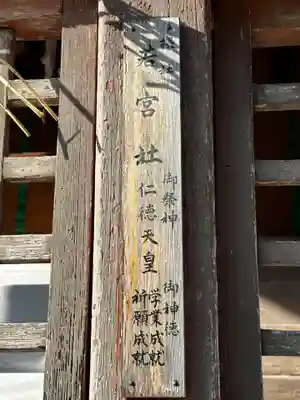 若宮社
御祭神
仁徳天皇
御神徳
学業成就
祈願成就